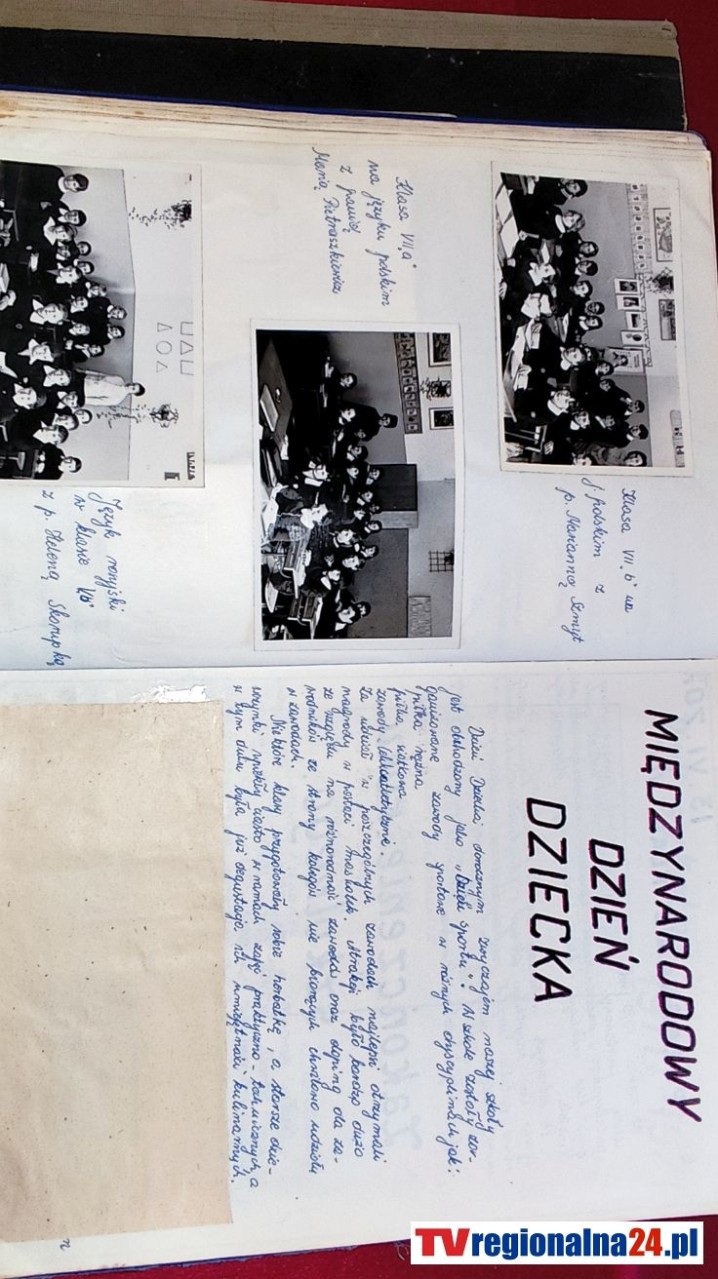 Klasa VII „b" na
j. polskim z
p. Marianną Szmyt
Klasa VII „a"
na języku polskim
z panią
Marią Pietraszkiewicz
Język rosyjski
w klasie
z p. Heleną Skorupką
MIĘDZYNARODOWY
DZIEŃ
DZIECKA
Dzień Dziecka dawnym zwyczajem naszej szkoły
jest obchodzony jako „Dzień Sportu". W szkole zostały zor-
ganizowane zawody sportowe w różnych dyscyplinach jak:
piłka nożna
piłka siatkowa
zawody lekkoatletyczne.
Za udział w poszczególnych zawodach najlepsi otrzymali
nagrody w postaci maskotek. Atrakcji było bardzo dużo
ze względu na różnorodność zawodów oraz doping dla za-
wodników ze strony kolegów nie biorących udziału
w zawodach.
Niektóre klasy przygotowały sobie herbatkę, a starsze dzie-
wczynki upiekły ciasto w ramach zajęć praktyczno-technicznych, a
w tym dniu była już degustacja ich umiejętności kulinarnych.
TVregionalna24.pl